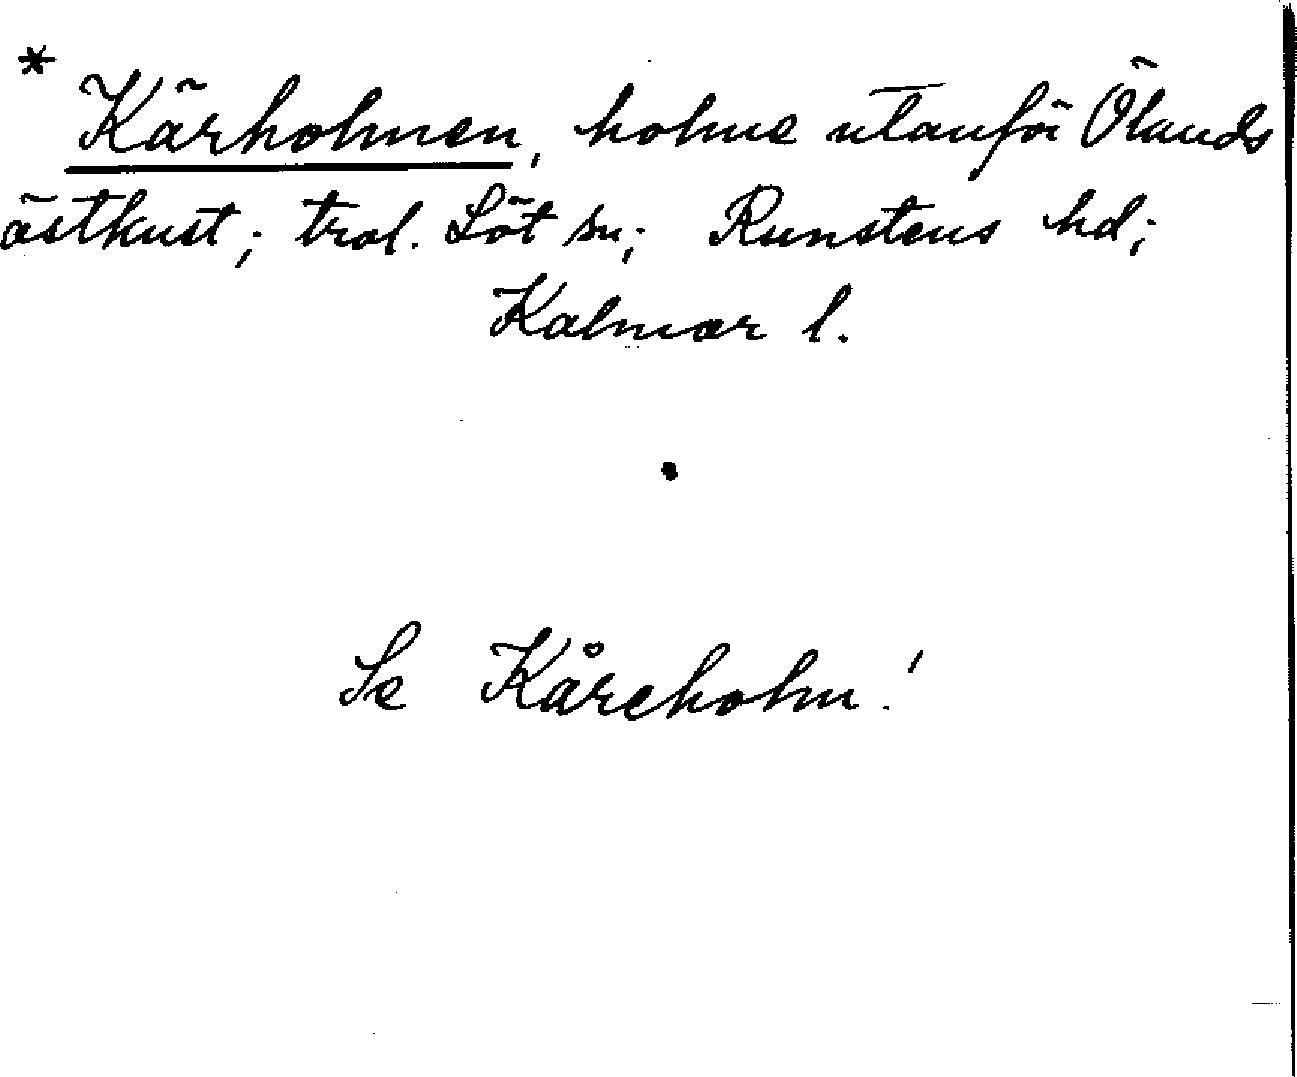 * Kärholmen, holme utanför Ölands
östkust; trol. Löt sn; Runstens hd;
Kalmar l.
Se Kåreholm!